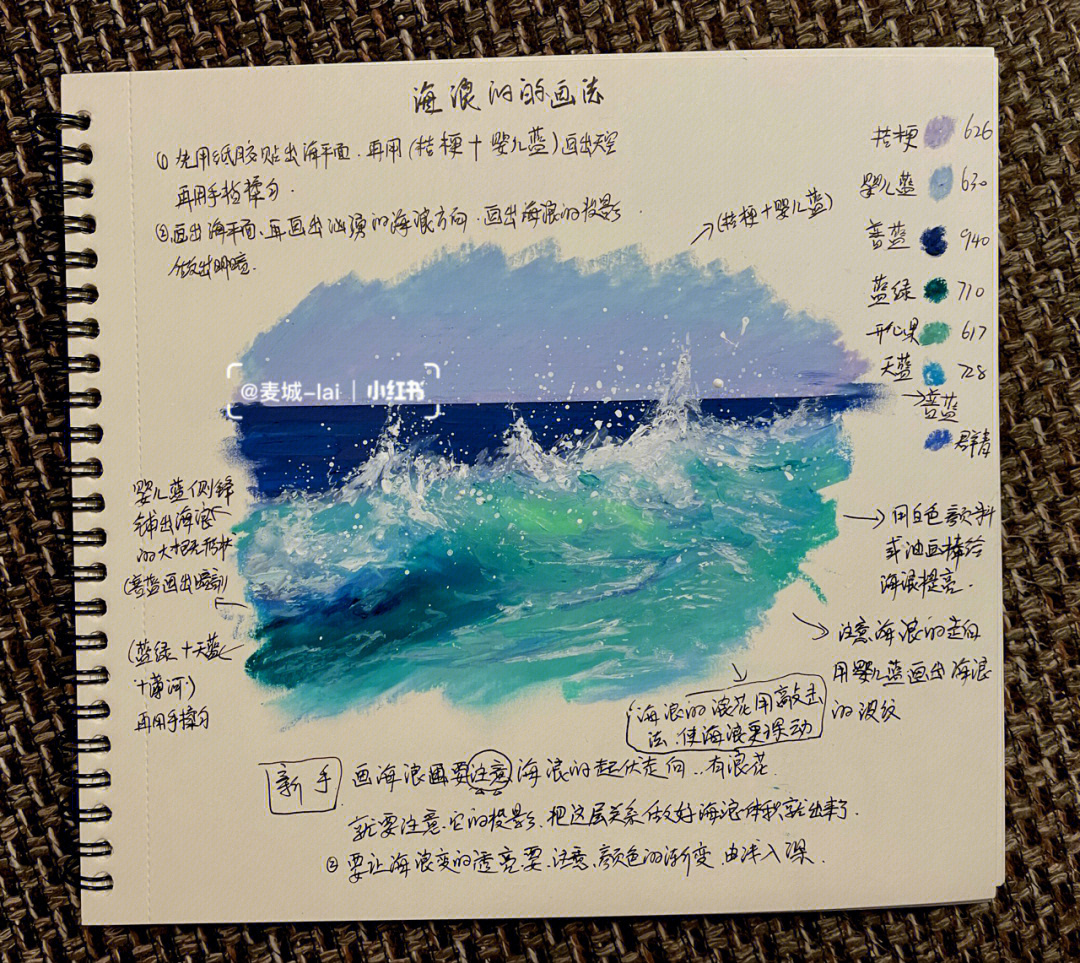 海浪的的画法
①先用纸胶贴出海平面.再用(桔梗+婴儿蓝)画出天空
再用手指揉匀.
②画出海平面、再画出汹涌的海浪方向.画出海浪的投影
做出明暗.
(桔梗+婴儿蓝)
桔梗 626
婴儿蓝 630
普蓝 940
蓝绿 710
开心果 617
天蓝 728
普蓝
群青
@麦城-lai | 小红书
婴儿蓝侧锋
铺出海浪
的大概形状
(普蓝画出暗部)
(蓝绿+天蓝
+薄河)
再用手揉匀
用白色颜料
或油画棒给
海浪提亮.
注意海浪的走向
用婴儿蓝画出海浪
的波纹
海浪的浪花用敲击
法.使海浪更灵动
新手 画海浪要注意海浪的起伏走向..有浪花.
就要注意.它的投影.把这层关系做好海浪体积就出来了.
②要让海浪变的透亮.要.注意.颜色的渐变.由浅入深.